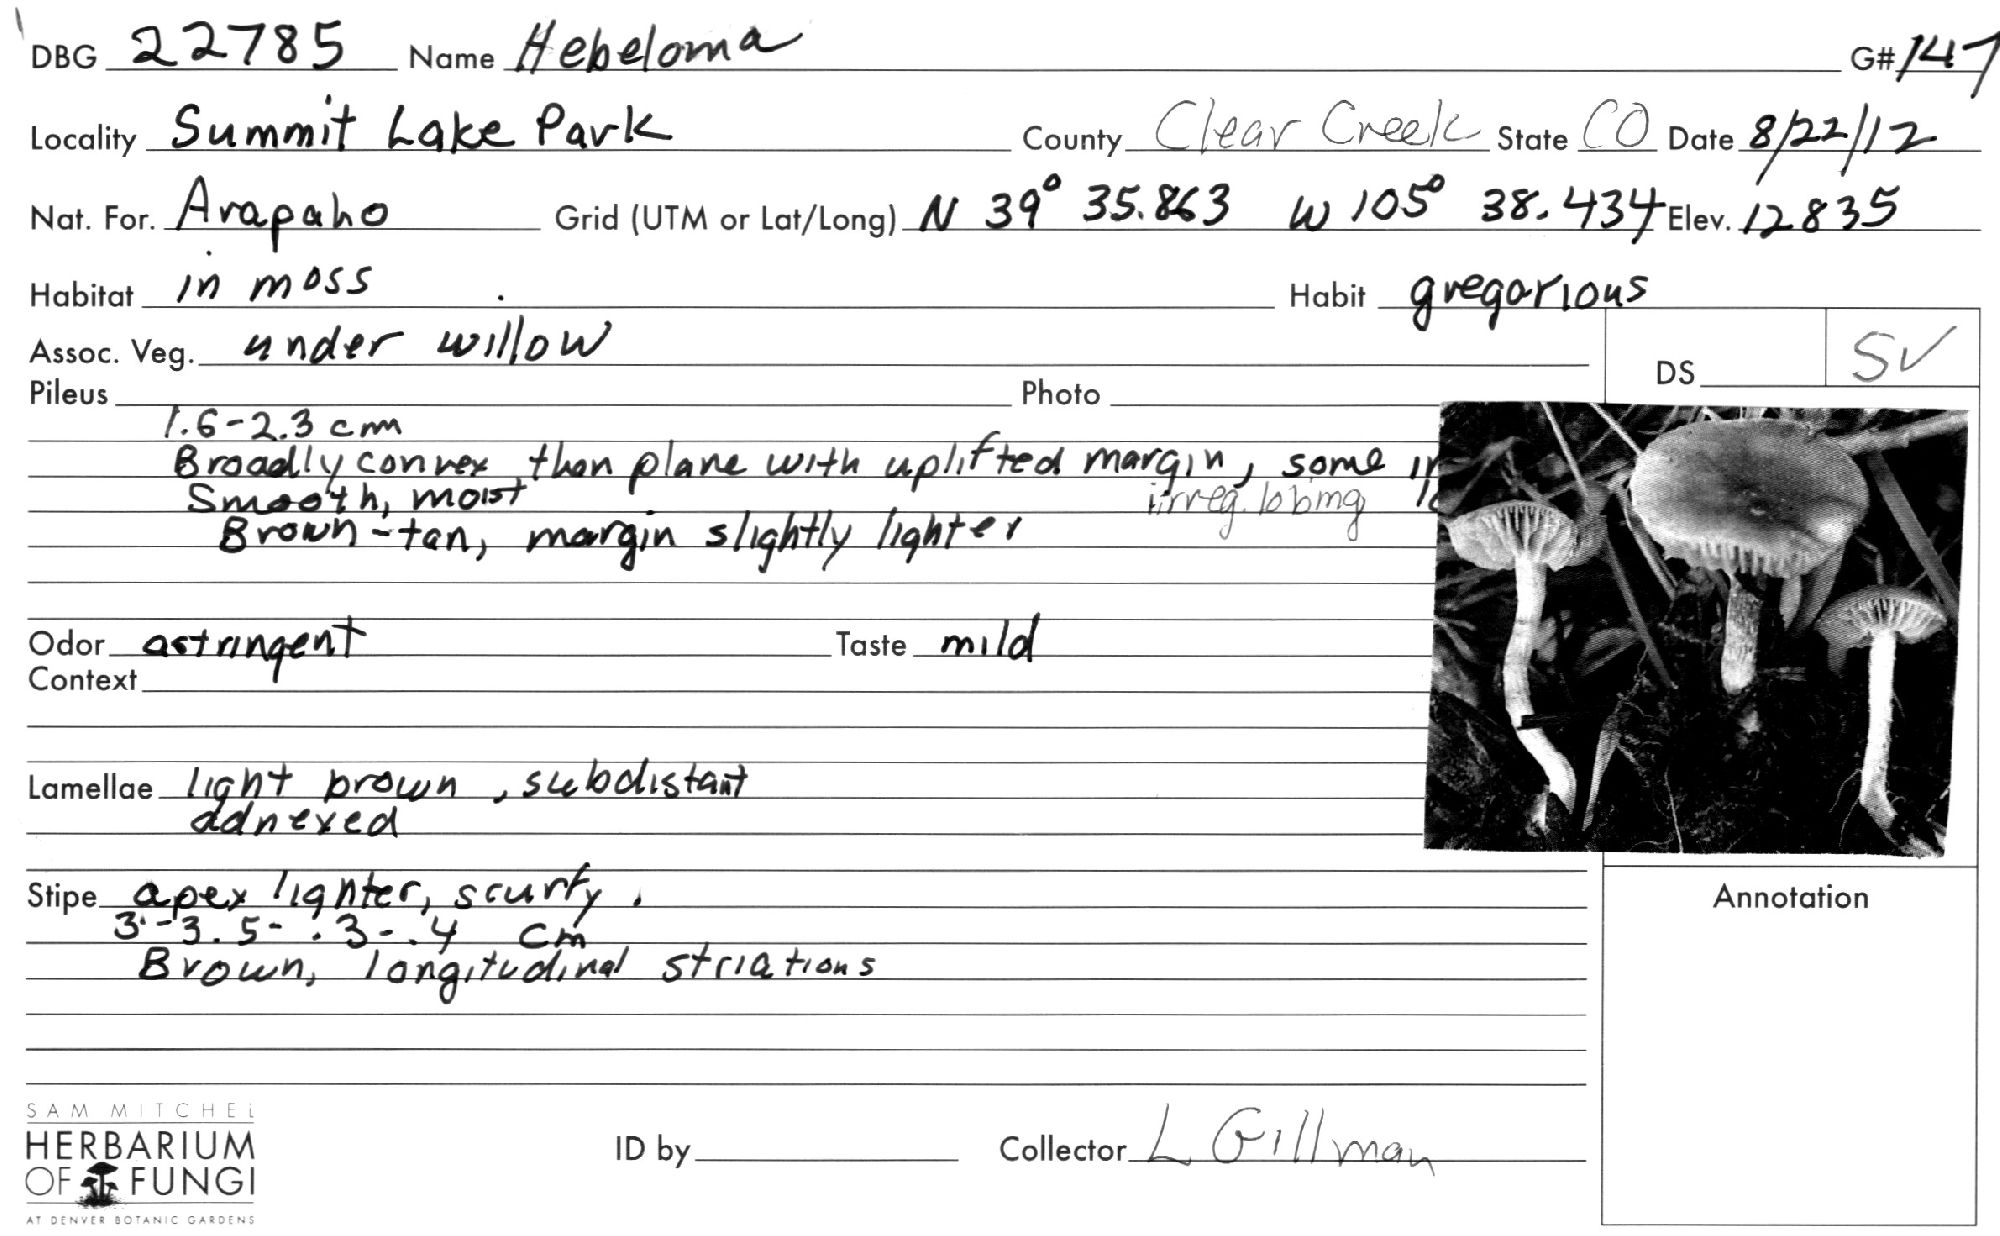 DBG 22785 Name Hebeloma G# 147
Locality Summit Lake Park County Clear Creek State CO Date 8/22/12
Nat. For. Arapaho Grid (UTM or Lat/Long) N 39° 35.863 W 105° 38.434 Elev. 12835
Habitat in moss Habit gregarious
Assoc. Veg. under willow
DS SV
Pileus Photo
1.6-2.3 cm
Broadly convex then plane with uplifted margin, some
Smooth, moist irreg. lobing
Brown-tan, margin slightly lighter
Odor astringent Taste mild
Context
Lamellae light brown, subdistant
adnexed
Stipe apex lighter, scurfy.
3-3.5- .3-.4 cm
Brown, longitudinal striations
Annotation
SAM MITCHEL
HERBARIUM
OF FUNGI
AT DENVER BOTANIC GARDENS
ID by Collector L Gillman